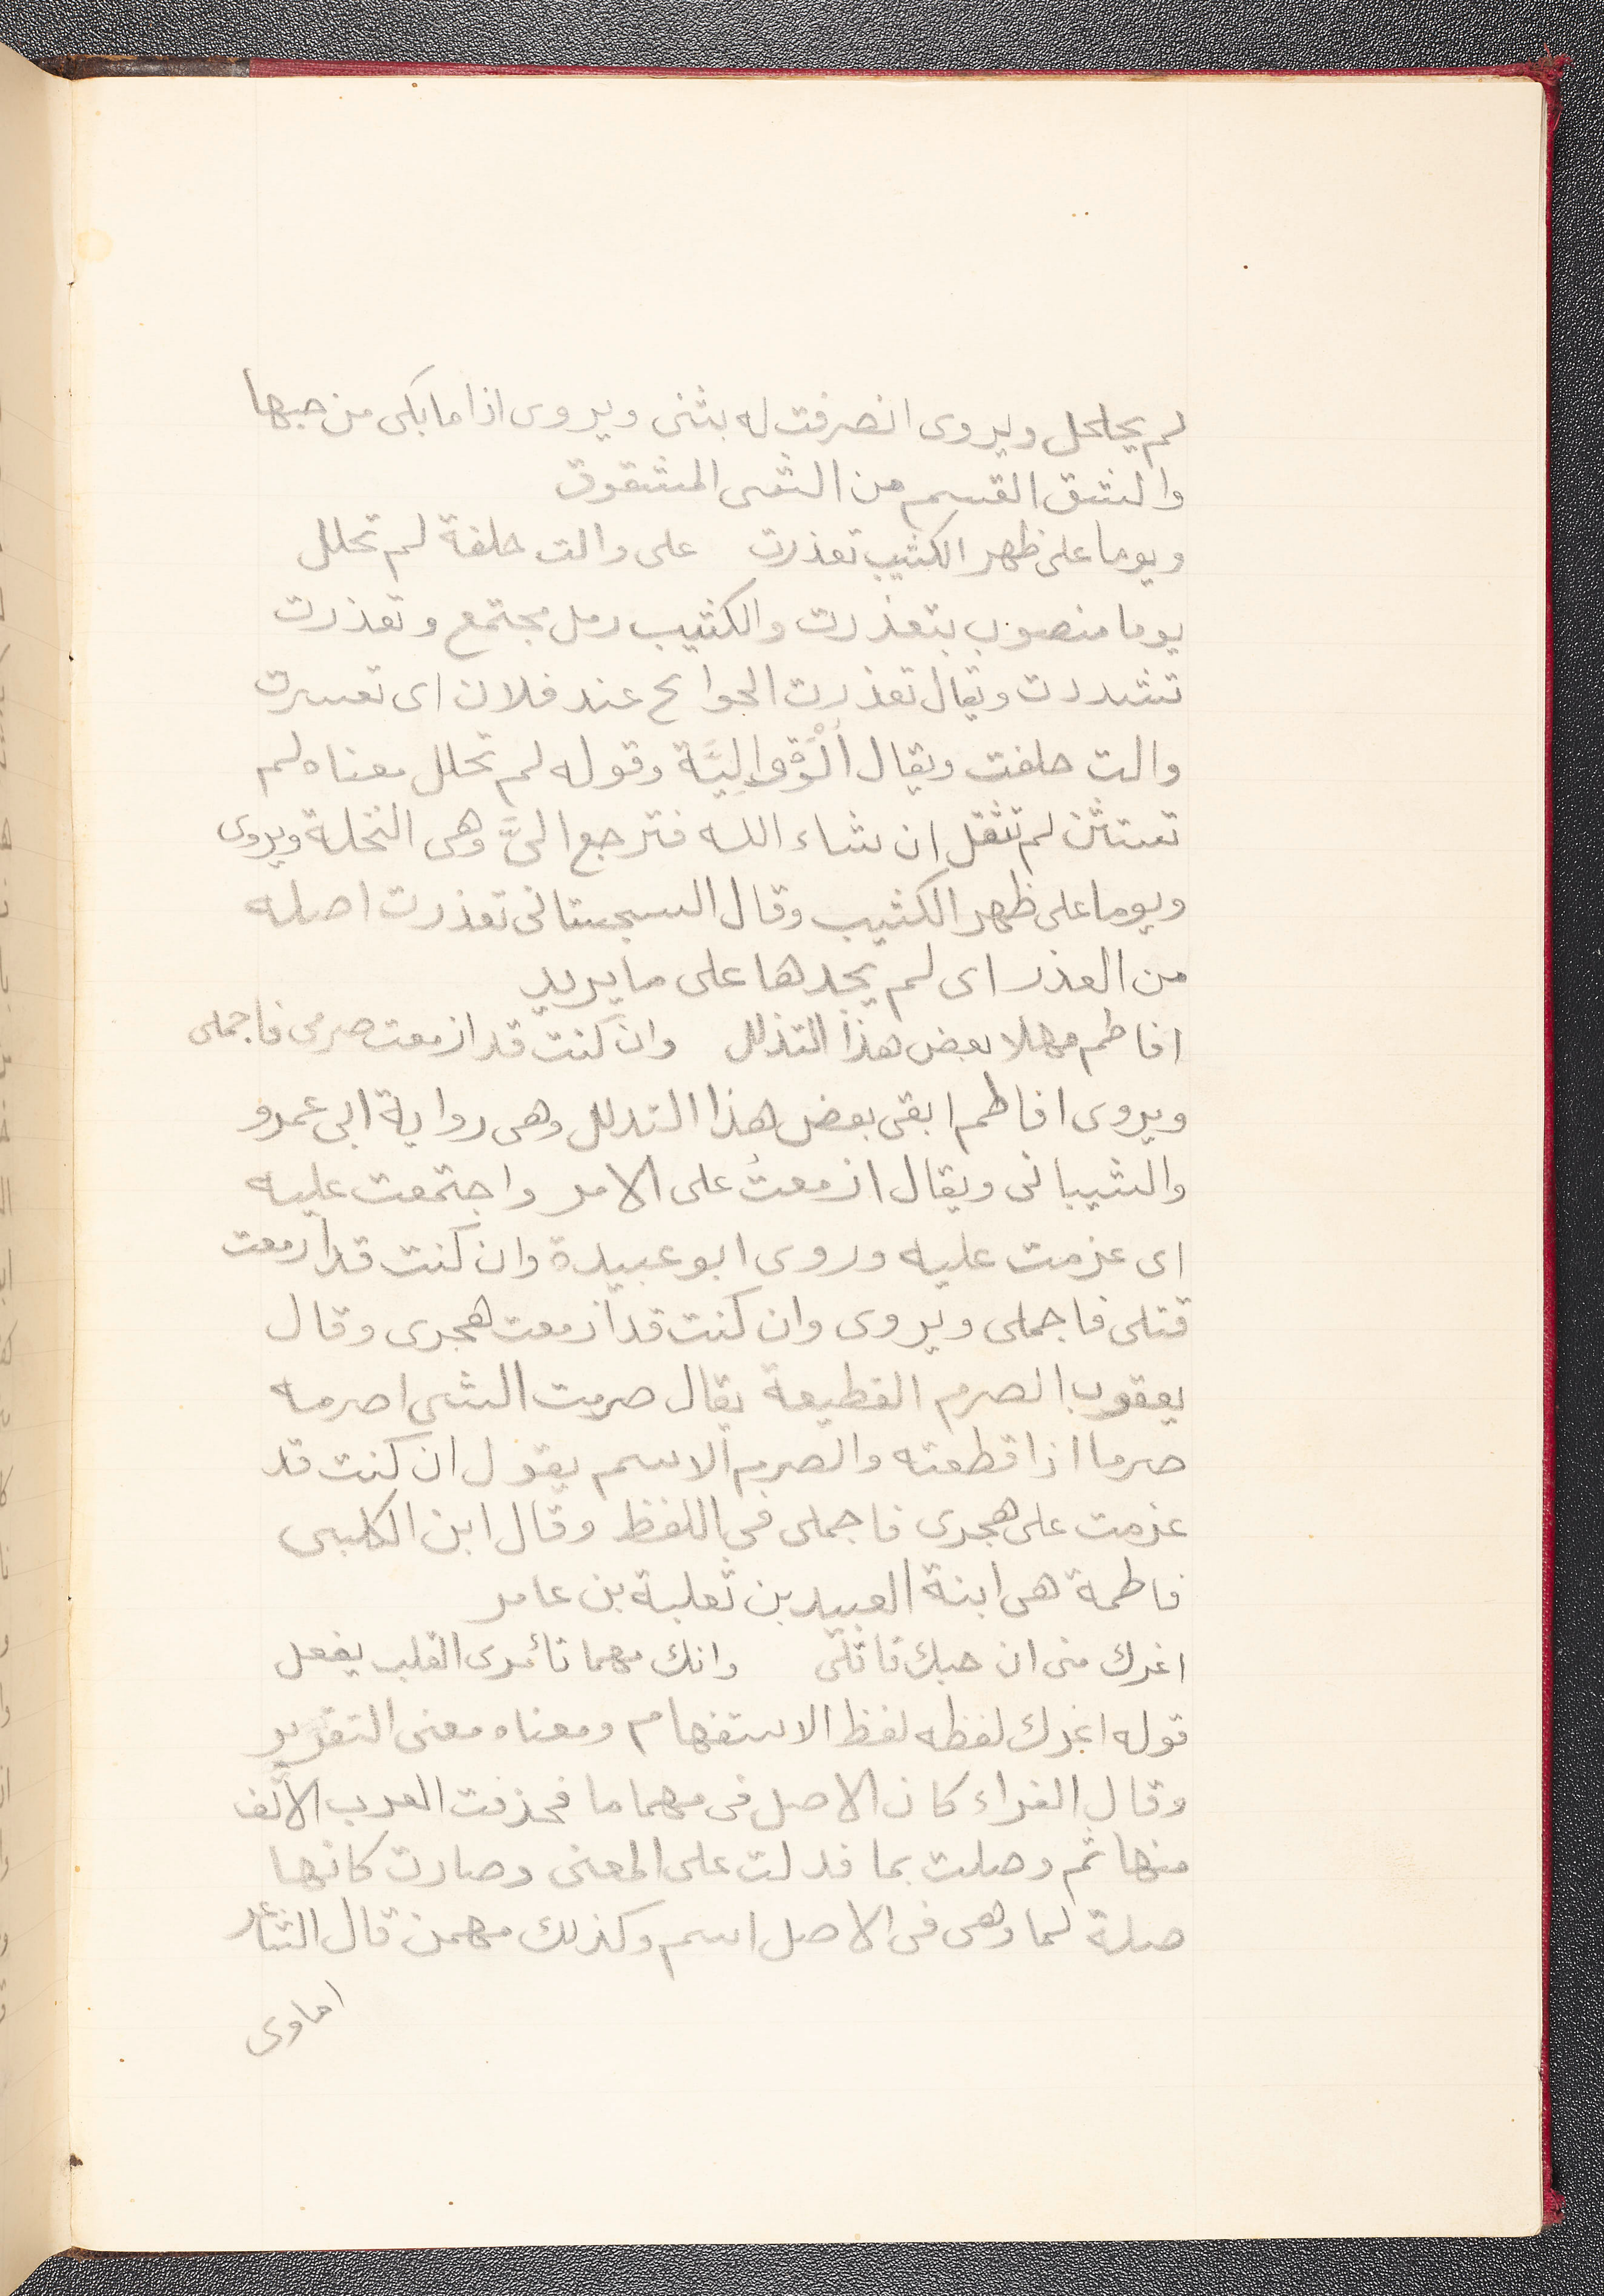 لم يحلحل ويروى انصرفت له بشق ويروى اذا ما بكى من حبها
والشق القسم من الشى المشقوق
ويوما على ظهر الكثيب تعذرت على والت حلفة لم تحلل
يوما منصوب بتعذرت والكثيب رمل مجتمع وتعذرت
تشددت ويقال تعذرت الحوائح عند فلان اى تعسرت
والت حلفت ويقال اَلْوَة واليَّة وقوله لم تحلل معناه لم
تستثن لم تقل ان شاء الله فترجع الىَّ وهى التحلة ويروى
ويوما على ظهر الكثيب وقال السجستانى تعذرت اصله
من العذر اى لم يجدها على ما يريد
افاطم مهلا بعض هذا التذلل وان كنت قد ازمعت صرمى فاجملى
ويروى افاطم ابقى بعض هذا التدلل وهى رواية ابى عمرو
والشيبانى ويقال ازمعتُ على الامر واجتمعت عليه
اى عزمت عليه وروى ابو عبيدة وان كنت قد ازمعت
قتلى فاجملى ويروى وان كنت قد ازمعت هجرى وقال
يعقوب الصرم القطيعة يقال صرمت الشى اصرمه
صرما اذا قطعته والصرم الاسم يقول ان كنت قد
عزمت على هجرى فاجملى فى اللفظ وقال ابن الكلبى
فاطمة هى ابنة العبيد بن ثعلبة بن عامر
اغرك منى ان حبك قاتلى وانك مهما تأمرى القلب يفعل
قوله اغرك لفظه لفظ الاستفهام ومعناه معنى التقرير
وقال الفراء كان الاصل فى مهما ما فحذفت العرب الألف
منها ثم وصلت بما فدلت على المعنى وصارت كانها
صلة لما وهى فى الاصل اسم وكذلك مهمن قال الشاعر
اماوى